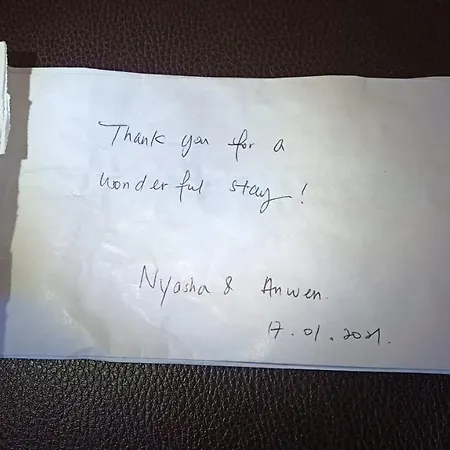 Thank you for a
wonderful stay!
Nyasha & Anwen.
17.01.2021.